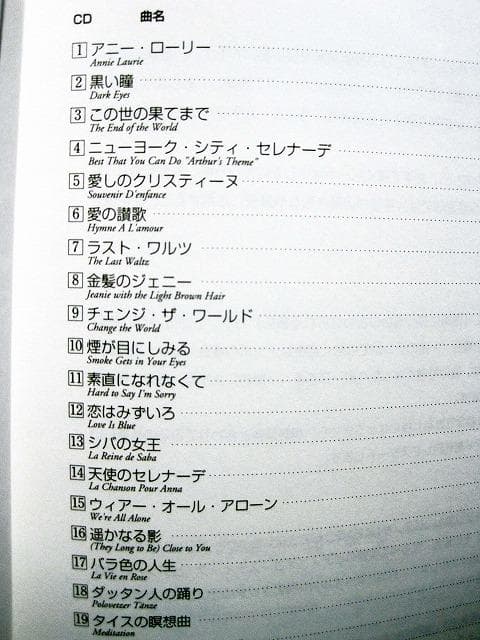 CD 曲名
1 アニー・ローリー
Annie Laurie
2 黒い瞳
Dark Eyes
3 この世の果てまで
The End of the World
4 ニューヨーク・シティ・セレナーデ
Best That You Can Do "Arthur's Theme"
5 愛しのクリスティーヌ
Souvenir D'enfance
6 愛の讃歌
Hymne A L'amour
7 ラスト・ワルツ
The Last Waltz
8 金髪のジェニー
Jeanie with the Light Brown Hair
9 チェンジ・ザ・ワールド
Change the World
10 煙が目にしみる
Smoke Gets in Your Eyes
11 素直になれなくて
Hard to Say I'm Sorry
12 恋はみずいろ
Love Is Blue
13 シバの女王
La Reine de Saba
14 天使のセレナーデ
La Chanson Pour Anna
15 ウィアー・オール・アローン
We're All Alone
16 遥かなる影
(They Long to Be) Close to You
17 バラ色の人生
La Vie en Rose
18 ダッタン人の踊り
Polovetzer Tänze
19 タイスの瞑想曲
Meditation